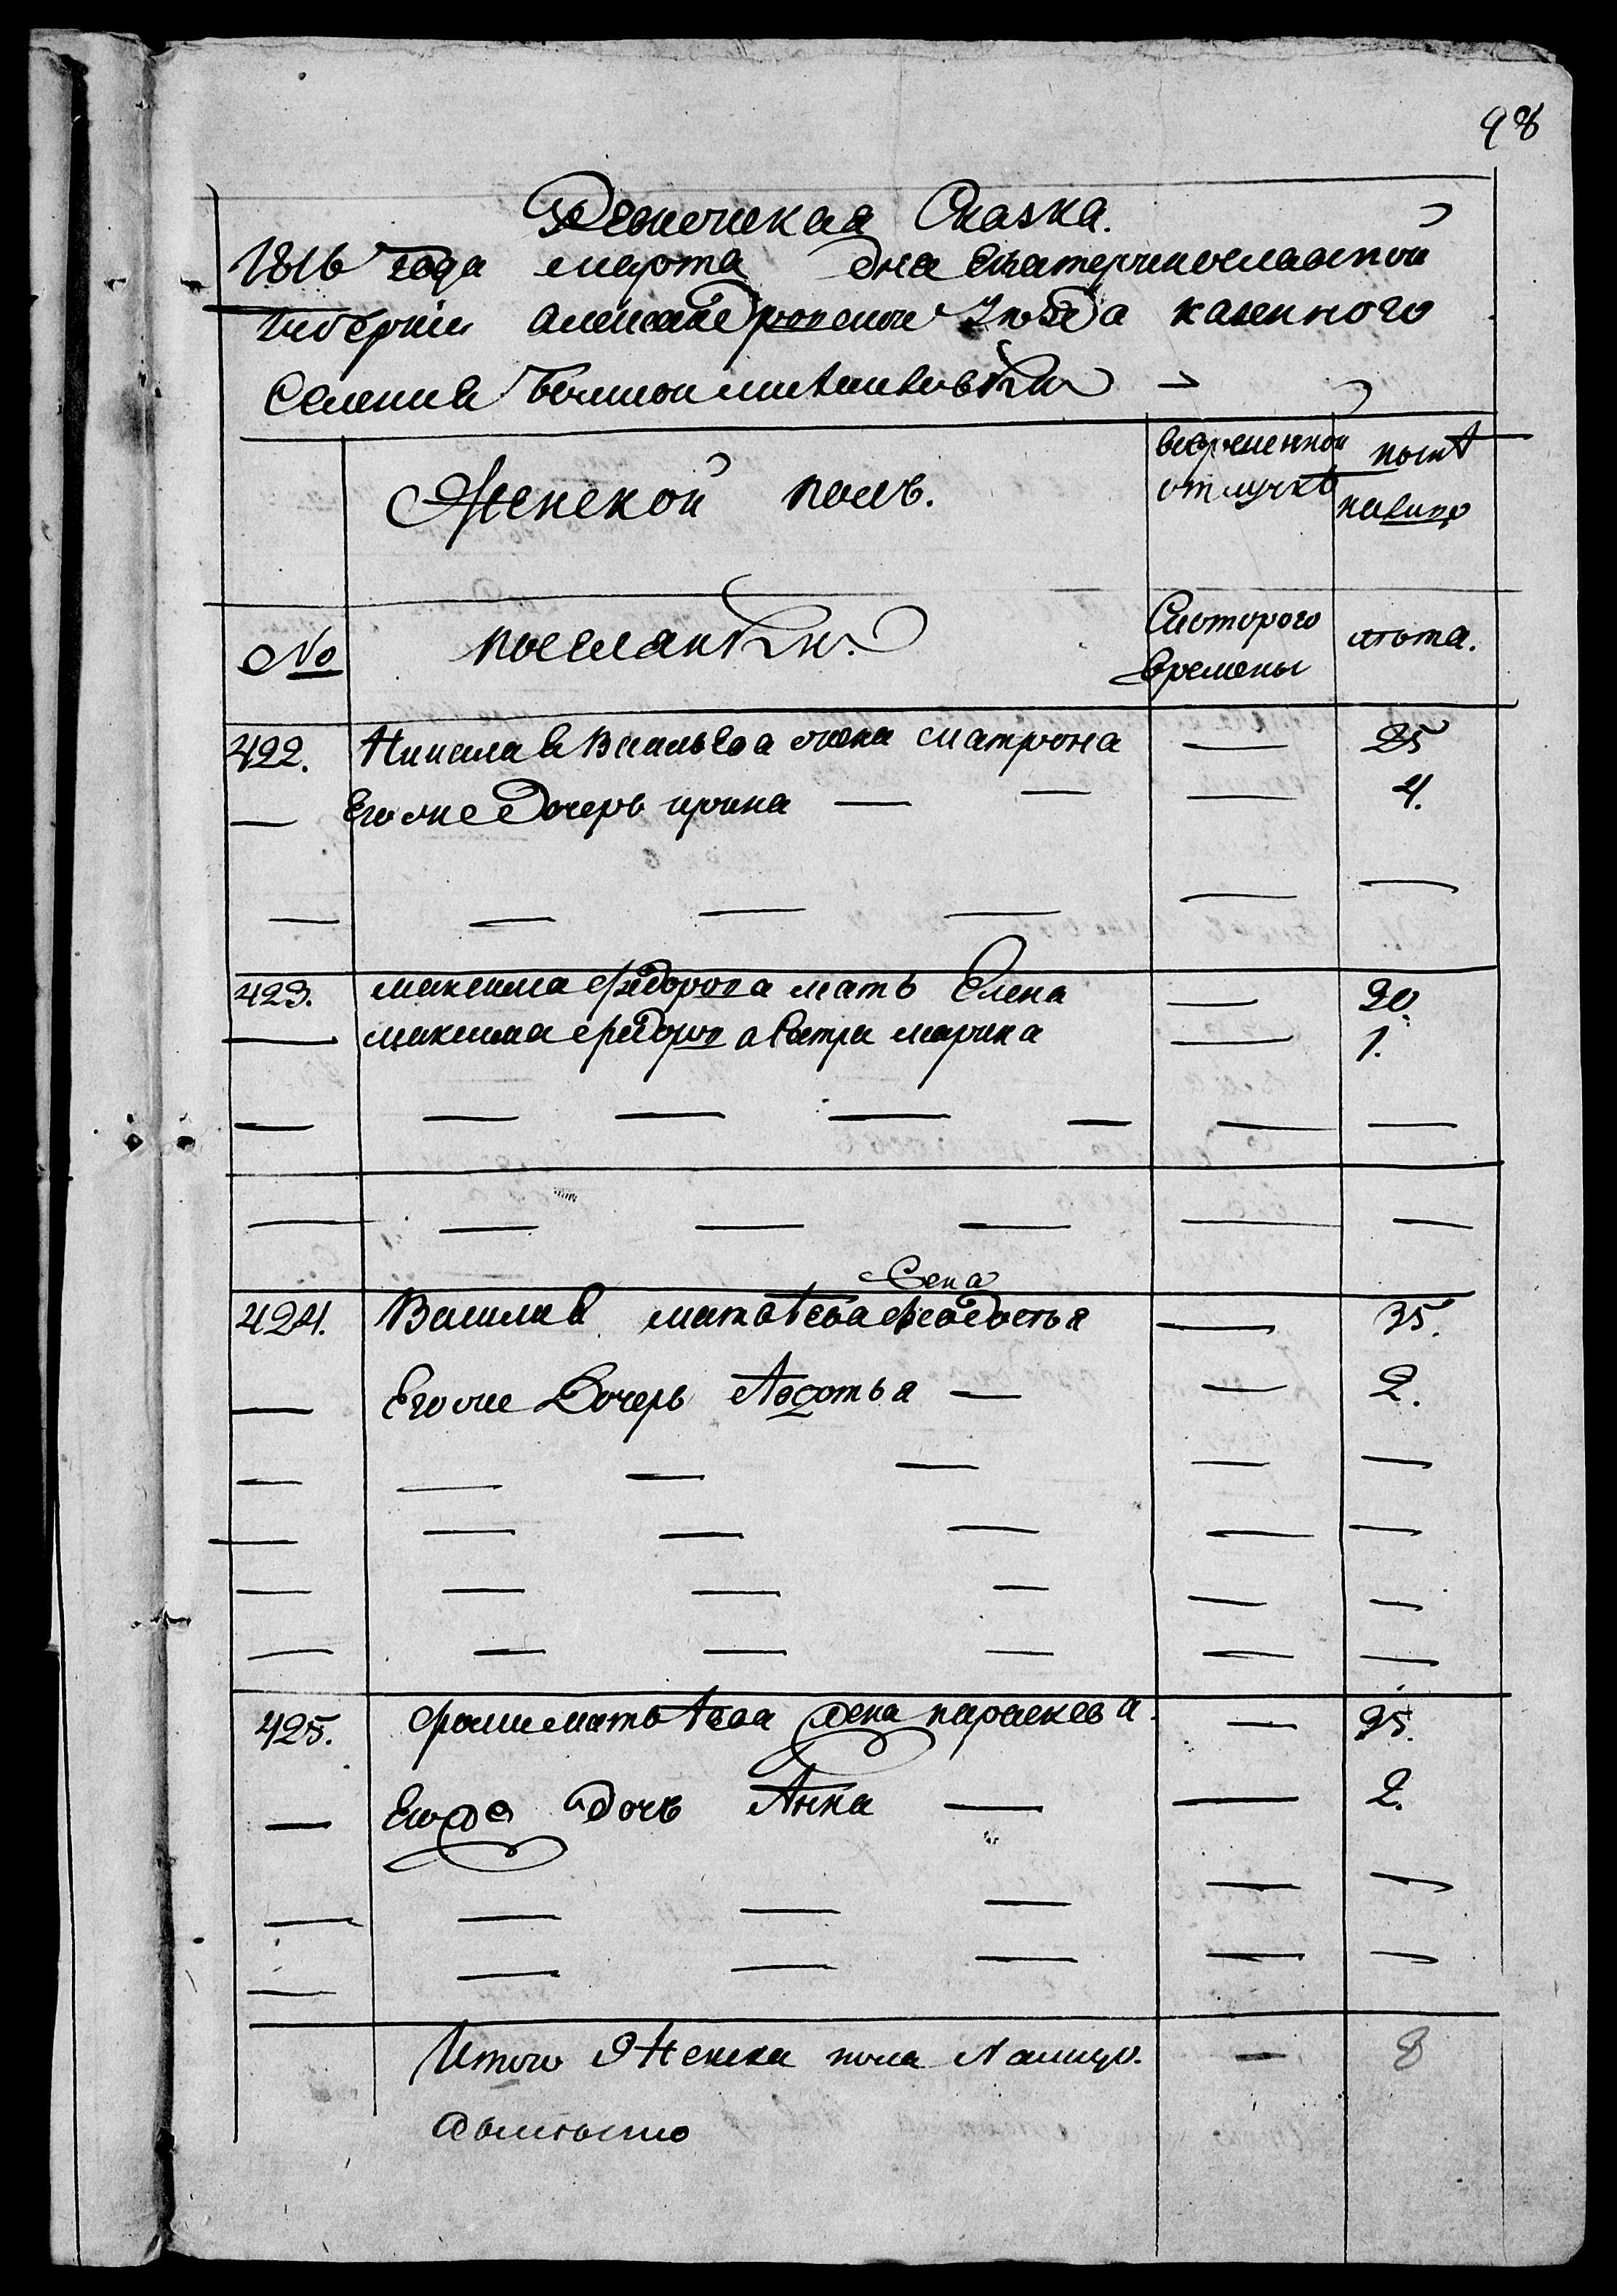 98
Ревижская Сказка.
1816 года марта дня Екатеринославской
губернии Александровской уезда казенного
Селения Большой михайловки
Женской полъ.
вовременной отлучке
ныне налицо
No
поселянки.
Скоторого времены
лета.
422. Николая Васильева жена матрона — 25
— Его же дочерь ирина — — — 4.
— — — — — —
423. максима федорова мать Елена — 20.
— максима федорова сестра марина — 1.
— — — — — — —
— — — — — —
жена
424. Василия матвеева феодосья — 35.
— Его же Дочерь Авдотья — — 2.
— — — — — —
— — — — — —
— — — — — —
— — — — — —
425. матвеева жена параскева. — 25.
— Егоже дочь Анна — — 2.
— — — — — —
— — — — — —
Итого Женска пола Налицо. — 8